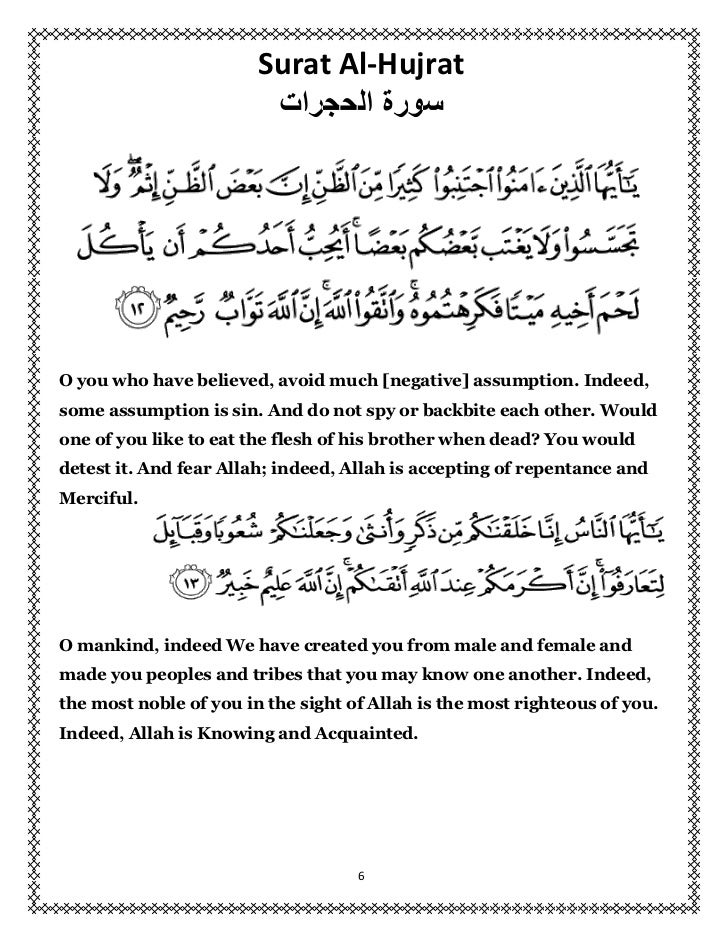 Surat Al-Hujrat
سورة الحجرات
يَـٰٓأَيُّهَا ٱلَّذِينَ ءَامَنُوا۟ ٱجْتَنِبُوا۟ كَثِيرًا مِّنَ ٱلظَّنِّ إِنَّ بَعْضَ ٱلظَّنِّ إِثْمٌ ۖ وَلَا
تَجَسَّسُوا۟ وَلَا يَغْتَب بَّعْضُكُم بَعْضًا ۚ أَيُحِبُّ أَحَدُكُمْ أَن يَأْكُلَ
لَحْمَ أَخِيهِ مَيْتًا فَكَرِهْتُمُوهُ ۚ وَٱتَّقُوا۟ ٱللَّهَ ۚ إِنَّ ٱللَّهَ تَوَّابٌ رَّحِيمٌ ١٢
O you who have believed, avoid much [negative] assumption. Indeed,
some assumption is sin. And do not spy or backbite each other. Would
one of you like to eat the flesh of his brother when dead? You would
detest it. And fear Allah; indeed, Allah is accepting of repentance and
Merciful.
يَـٰٓأَيُّهَا ٱلنَّاسُ إِنَّا خَلَقْنَـٰكُم مِّن ذَكَرٍ وَأُنثَىٰ وَجَعَلْنَـٰكُمْ شُعُوبًا وَقَبَآئِلَ
لِتَعَارَفُوٓا۟ ۚ إِنَّ أَكْرَمَكُمْ عِندَ ٱللَّهِ أَتْقَىٰكُمْ ۚ إِنَّ ٱللَّهَ عَلِيمٌ خَبِيرٌ ١٣
O mankind, indeed We have created you from male and female and
made you peoples and tribes that you may know one another. Indeed,
the most noble of you in the sight of Allah is the most righteous of you.
Indeed, Allah is Knowing and Acquainted.
6